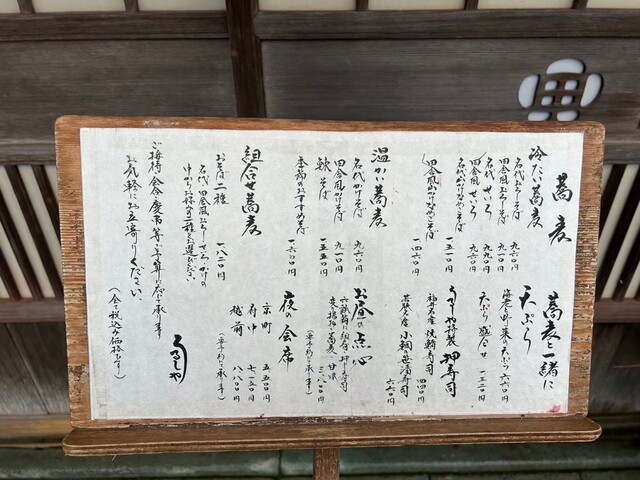 蕎麦
冷たい蕎麦
名代おろしそば 九六〇円
田舎風おろしそば 九一〇円
名代せいろ 九九〇円
田舎風せいろ 九四〇円
一五一〇円
田舎風山かけなめこそば 一四六〇円
温かい蕎麦
名代かけそば 九六〇円
田舎風かけそば 九一〇円
鰊そば 一五五〇円
季節のおすすめそば 一六〇〇円
組合せ蕎麦
おそば二種 一八二〇円
名代 田舎風おろし せいろ かけの
中からお好みの二種をお選びください
ご接待 会食 慶弔等ご予算に応じて承ります
お気軽にお立寄りください
蕎麦と一緒に
天ぷら
海老と野菜の天ぷら
天ぷら盛合せ
うるしや特製 押寿司
神戸 焼鯖寿司
若狭名産 小鯛笹漬寿司
お昼の点心
蕎麦 甘味 三八〇〇円
(要予約で承ります)
夜の会席
京町 五五〇〇円
府中 七一五〇円
越前 八八〇〇円
(要予約で承ります)
うるしや
(全て税込み価格です)